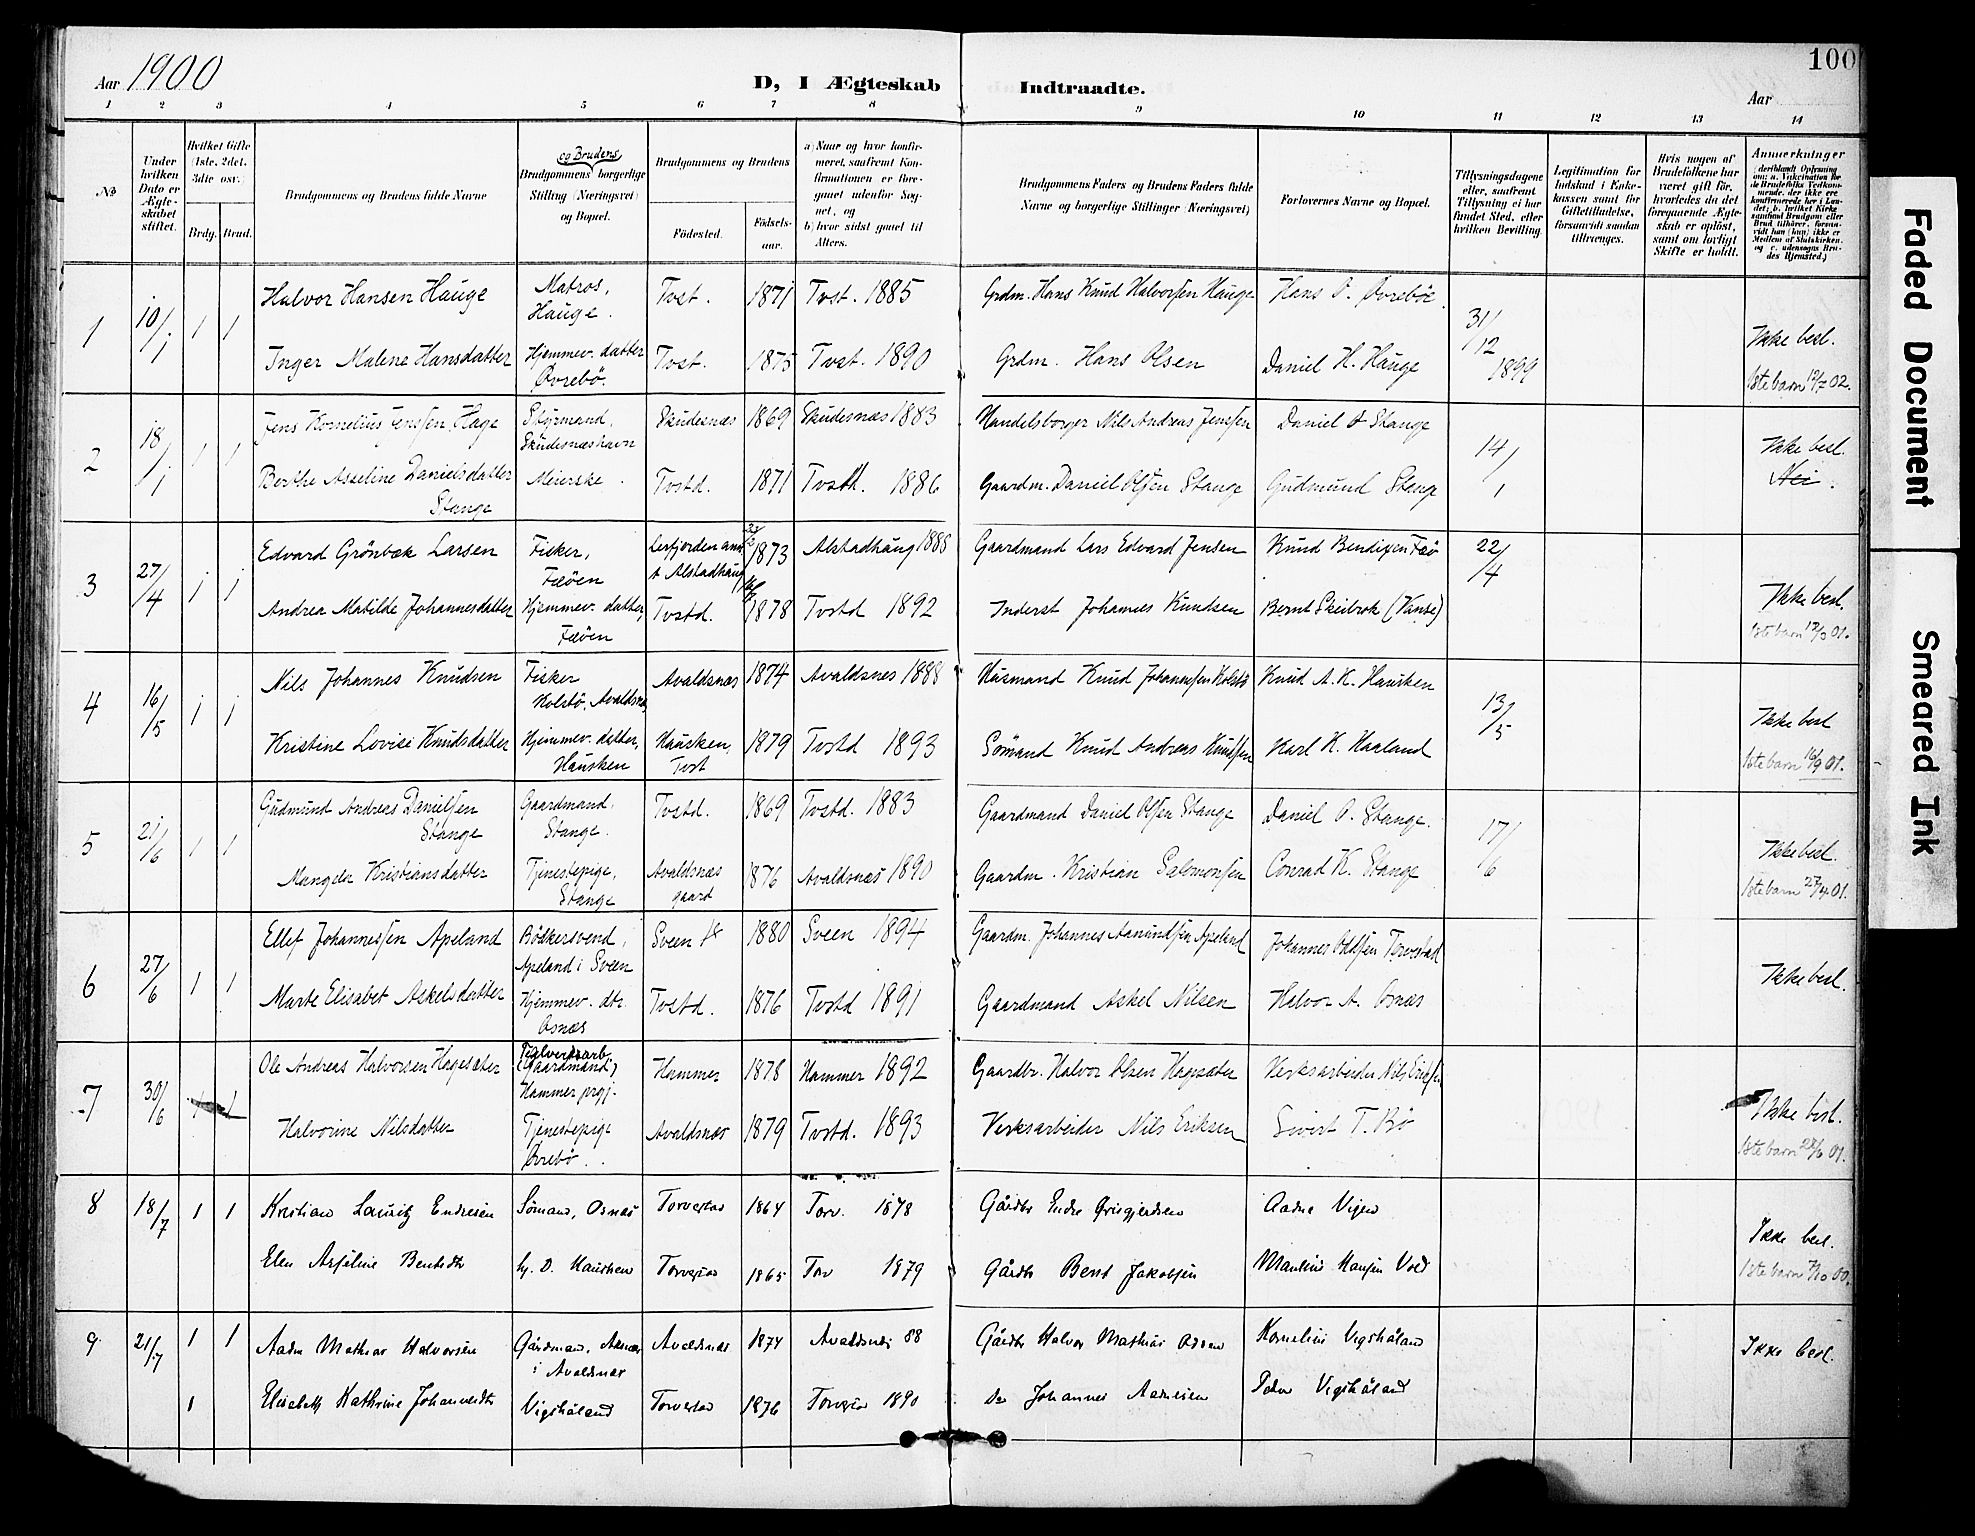 100
Aar 1900
D, I Ægteskab Indtraadte.
Aar
1 2 3 4 5 6 7 8 9 10 11 12 13 14
No
Under hvilken Dato er Ægteskabet stiftet.
Hvilket Gifte (1ste, 2det, 3die osv.)
Brdg. Brud.
Brudgommens og Brudens fulde Navne
og Brudens
Brudgommens borgerlige Stilling (Næringsvei) og Bopæl.
Brudgommens og Brudens
Fødested. Fødselsaar.
a) Naar og hvor konfirmeret, saafremt Konfirmationen er foregaaet udenfor Sognet, og
b) hvor sidst gaaet til Alters.
Brudgommens Faders og Brudens Faders fulde Navne og borgerlige Stillinger (Næringsvei)
Forlovernes Navne og Bopæl.
Tillysningsdagene eller, saafremt Tillysning ei har fundet Sted, efter hvilken Bevilling.
Legitimation for Indskud i Enkekassen samt for Giftetilladelse, forsaavidt saadan tiltrænges.
Hvis nogen af Brudefolkene har været gift før, hvorledes da det foregaaende Ægteskab er opløst, samt om lovligt Skifte er holdt.
Anmerkninger
1 10/1 1 1 Halvor Hansen Hauge Matros, Hauge. Tvst. 1871 Tvst. 1885 Grdm. Hans Knud Halvorsen Hauge Hans O. Øvreböe 31/12 1899 Ikke besl.
Inger Malene Hansdatter Hjemmev. datter Øvrebö. Tvst. 1875 Tvst. 1890 Grdm. Hans Olsen Daniel H. Hauge 1ste barn 12/7 02.
2 18/1 1 1 Jens Kornelius Jenssen Hage Styrmand, Skudesnæshavn Skudesnæs 1869 Skudesnæs 1883 Handelsborger Nils Andreas Jenssen Daniel O Stange 14/1 Ikke besl.
Berthe Asseline Danielsdatter Stange Meierske. Tvstd. 1871 Tvstd. 1886 Gaardm. Daniel Olsen Stange Gudmund Stange Nei.
3 27/4 1 1 Edvard Grönbæk Larsen Fisker, Fæöen Leirfjorden ann. t. Alstadhaug 1873 Alstadhaug 1888 Gaardmand Lars Edvard Jensen Knud Bendixen Fæö 22/4
Andrea Matilde Johannesdatter Hjemmev. datter, Fæöen Tvstd. 1878 Tvstd 1892 Inderst Johannes Knudsen Bernt Skeibrok (Vanse) Ikke besl.
1ste barn 01.
4 16/5 1 1 Nils Johannes Knudsen Fisker Kolstö, Avaldsnæs Avaldsnæs 1874 Avaldsnes 1888 Husmand Knud Johannssen Kolstö Knud A. K. Hausken 13/5 Ikke besl
Kristine Lovise Knudsdatter Hjemmev. datter, Hausken Hausken, Tvst 1879 Tvstd 1893 Sömand Knud Andreas Knudsen Karl K. Haaland 1ste barn 16/9 01.
5 21/6 1 1 Gudmund Andreas Danielsen Stange Gaardmand, Stange. Tvstd. 1869 Tvstd. 1883 Gaardmand Daniel Olsen Stange Daniel O. Stange. 17/6
Mangela Kristiansdatter Tjenestepige, Stange Avaldsnæs gaard 1876 Avaldsnæs 1890 Gaardm. Kristian Salomonsen Conrad K. Stange Ikke besl.
1ste barn 01.
6 27/6 1 1 Ellef Johannessen Apeland Bödkersvend, Apeland i Sveen Sveen 1880 Sveen 1894 Gaardm. Johannes Aanundsen Apeland Johannes Oddsen Torvestad Ikke besl.
Marte Elisabet Askelsdatter Hjemmev. dtr. Osnæs Tvstd. 1876 Tvstd 1891 Gaardmand Askel Nilsen Halvor A. Osnæs
7 30/6 1 1 Ole Andreas Halvorsen Hagesæter Teglverksarb. (Gaardmand) Hammer prgj. Hammer 1878 Hammer 1892 Gaardbr. Halvor Olsen Hagesæter Verksarbeider Nils Eriksen Ikke besl.
Halvorine Nilsdatter Tjenestepige Øvrebö.. Avaldsnæs 1879 Tvstd. 1893 Verksarbeider Nils Eriksen Sivert T. Bö 1ste barn 01.
8 18/7 1 1 Kristian Lauritz Endresen Sömand, Osnæs Torvestad 1864 Torv. 1878 Gårdbr Endre Aadne Vigen Ikke besl.
Elen Asseline Bentsdtr hj. D. Hausken Torvestad 1865 Torv 1879 Gårdbr Bent Jakobsen 1ste barn 7/10 00.
9 21/7 1 1 Aadne Mathias Halvorsen Gårdmand, i Avaldsnæs Avaldsnæs 1874 Avaldsnæs 88 Gårdbr Halvor Mathias Kornelius Vigshåland Ikke besl.
1 Elisabeth Kathrine Johannesdtr Vigshåland Torvestad 1876 Torvestad 1890 Do Johannes Aadnesen Peder Vigshåland
Faded Document
Smeared Ink